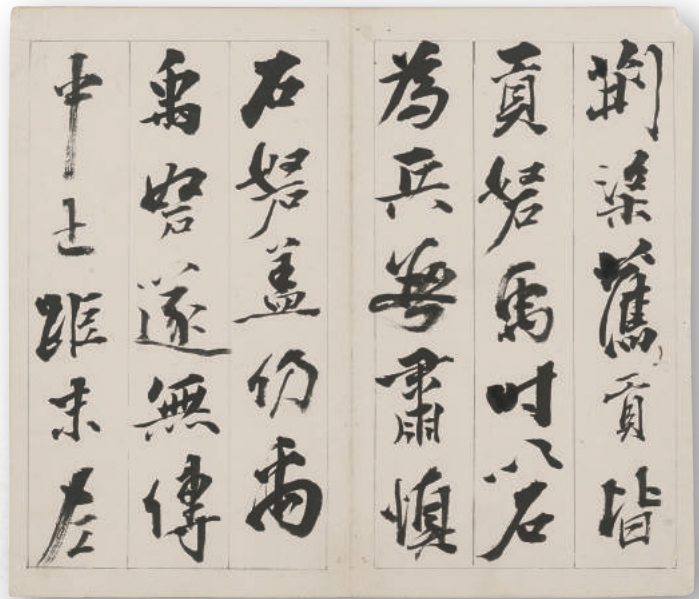 荆梁舊貢皆
貢砮禹时以石
為兵肅慎
石砮盖仍禹
禹砮遂無傳
中土距末左